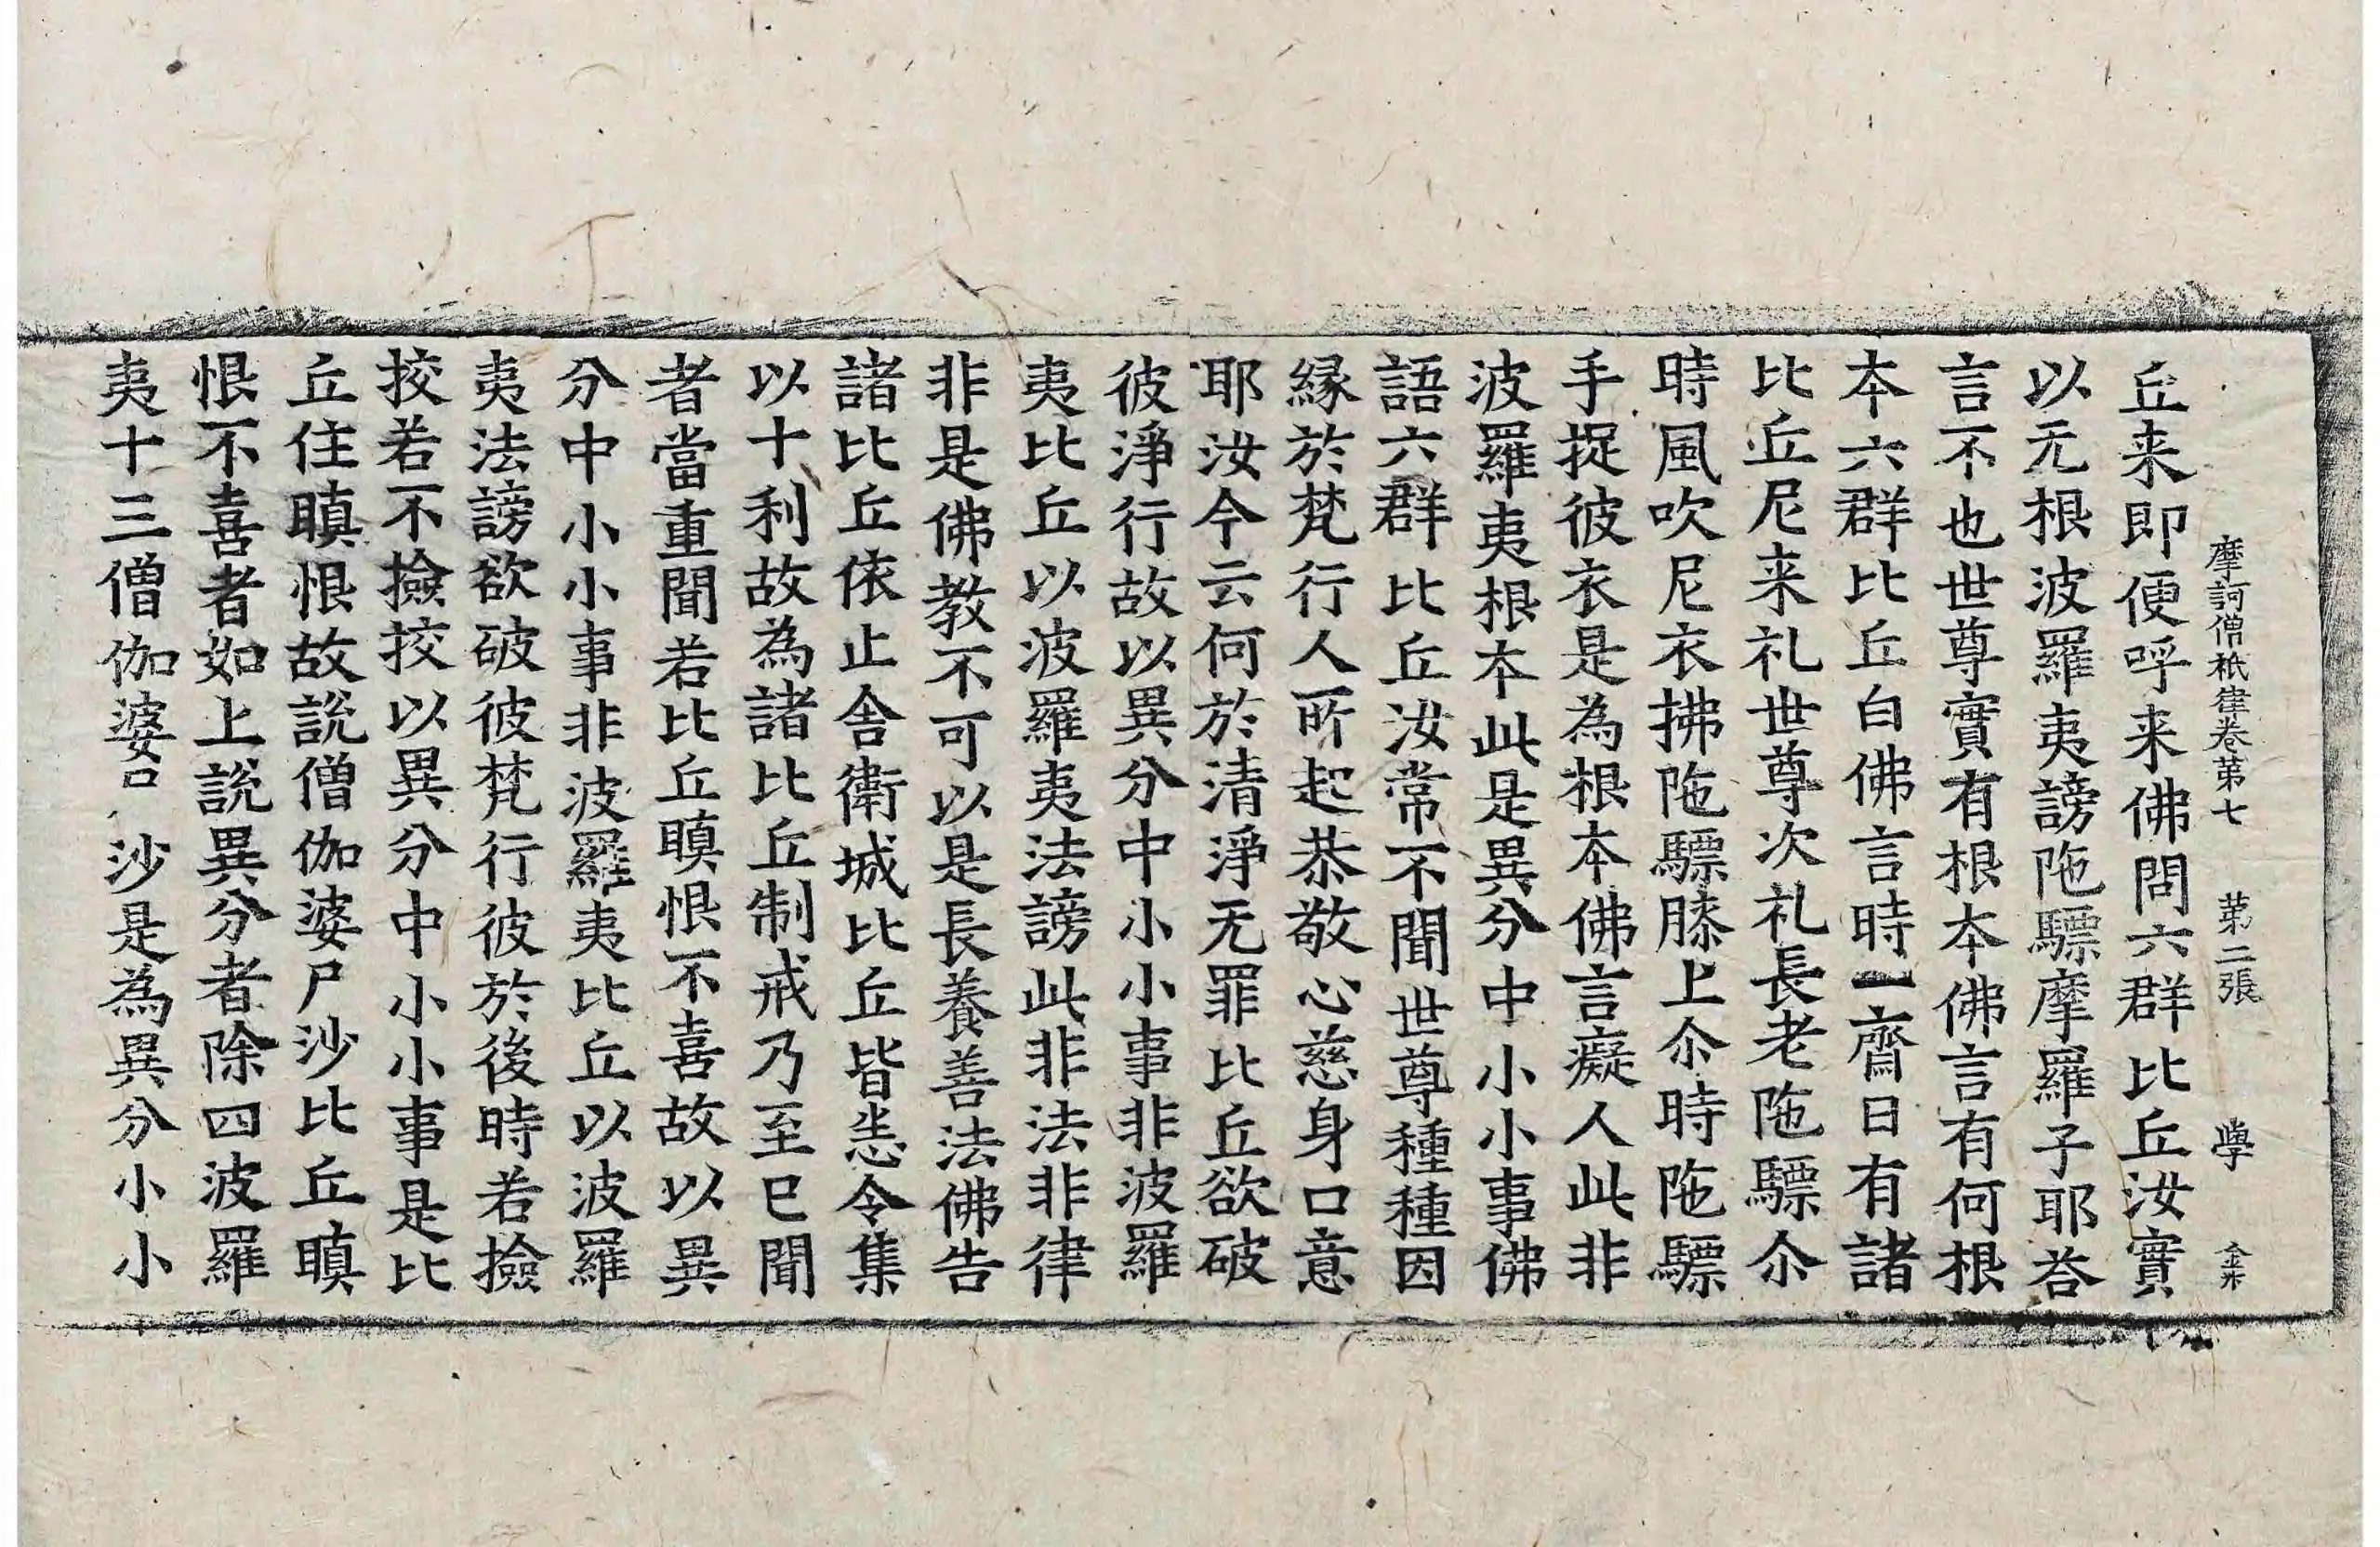 摩訶僧祇律卷第七 第二張 學
丘来即便呼来佛問六群比丘汝實
以无根波羅夷謗陁驃摩羅子耶荅
言不也世尊實有根本佛言有何根
本六群比丘白佛言時一齋日有諸
比丘尼来礼世尊次礼長老陁驃尒
時風吹尼衣拂陁驃膝上尒時陁驃
手捉彼衣是為根本佛言癡人此非
波羅夷根本此是異分中小小事佛
語六群比丘汝常不聞世尊種種因
緣於梵行人所起恭敬心慈身口意
耶汝今云何於清淨无罪比丘欲破
彼淨行故以異分中小小事非波羅
夷比丘以波羅夷法謗此非法非律
非是佛教不可以是長養善法佛告
諸比丘依止舍衛城比丘皆悉令集
以十利故為諸比丘制戒乃至已聞
者當重聞若比丘瞋恨不喜故以異
分中小小事非波羅夷比丘以波羅
夷法謗欲破彼梵行彼於後時若撿
挍若不撿挍以異分中小小事是比
丘住瞋恨故說僧伽婆尸沙比丘瞋
恨不喜者如上說異分者除四波羅
夷十三僧伽婆沙是為異分小小